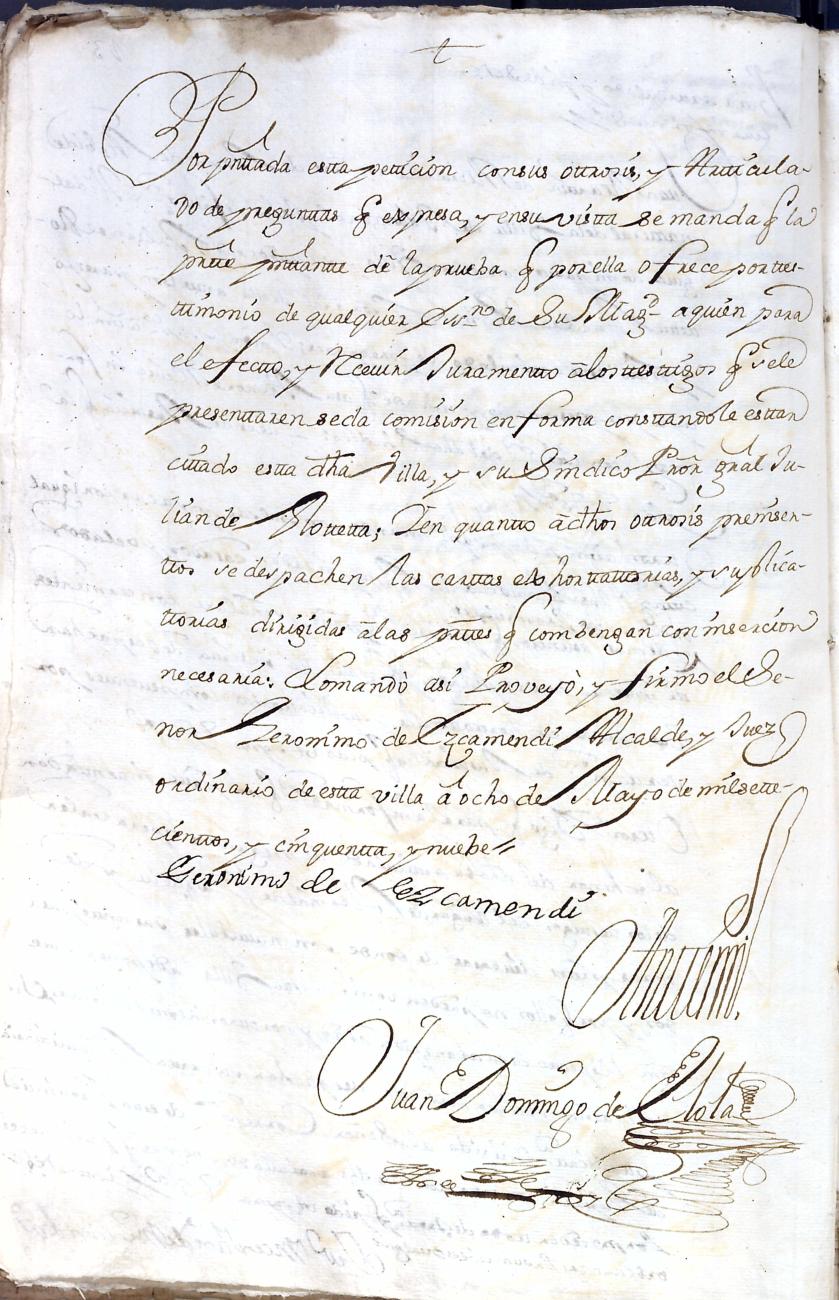 Por pnttada estta petticion con sus ottrosis, y Artticula-
do de preguntas q̃ expresa, y en su vistta se manda q̃ la
partte pnttantte dè la prueba q̃ por ella ofrece por ttes-
ttimonio de qualquier Ess.no de Su Mag.d a quien para
el efectto, y Recevir Juramentto a los ttesttigos q̃ se le
presenttaren se da comision en forma consttandole esttar
cittado estta dha Villa, y su Sindico Pror gral Ju-
lian de Rotteta; Y en quantto a dhos ottrosis preinser-
ttos se despachen las carttas exhorttattorias, y suplica-
ttorias dirigidas a las parttes q̃ combengan con insercion
necesaria: Lo mandò asi Proveyò, y firmo el Se-
nor Geronimo de Ezcamendi Alcalde, y Juez
ordinario de estta villa a ocho de Mayo de mil sette-
cienttos, y cinquentta, y nuebe //
Geronimo de Ezcamendi
Anttemi.
Juan Domingo de Elola